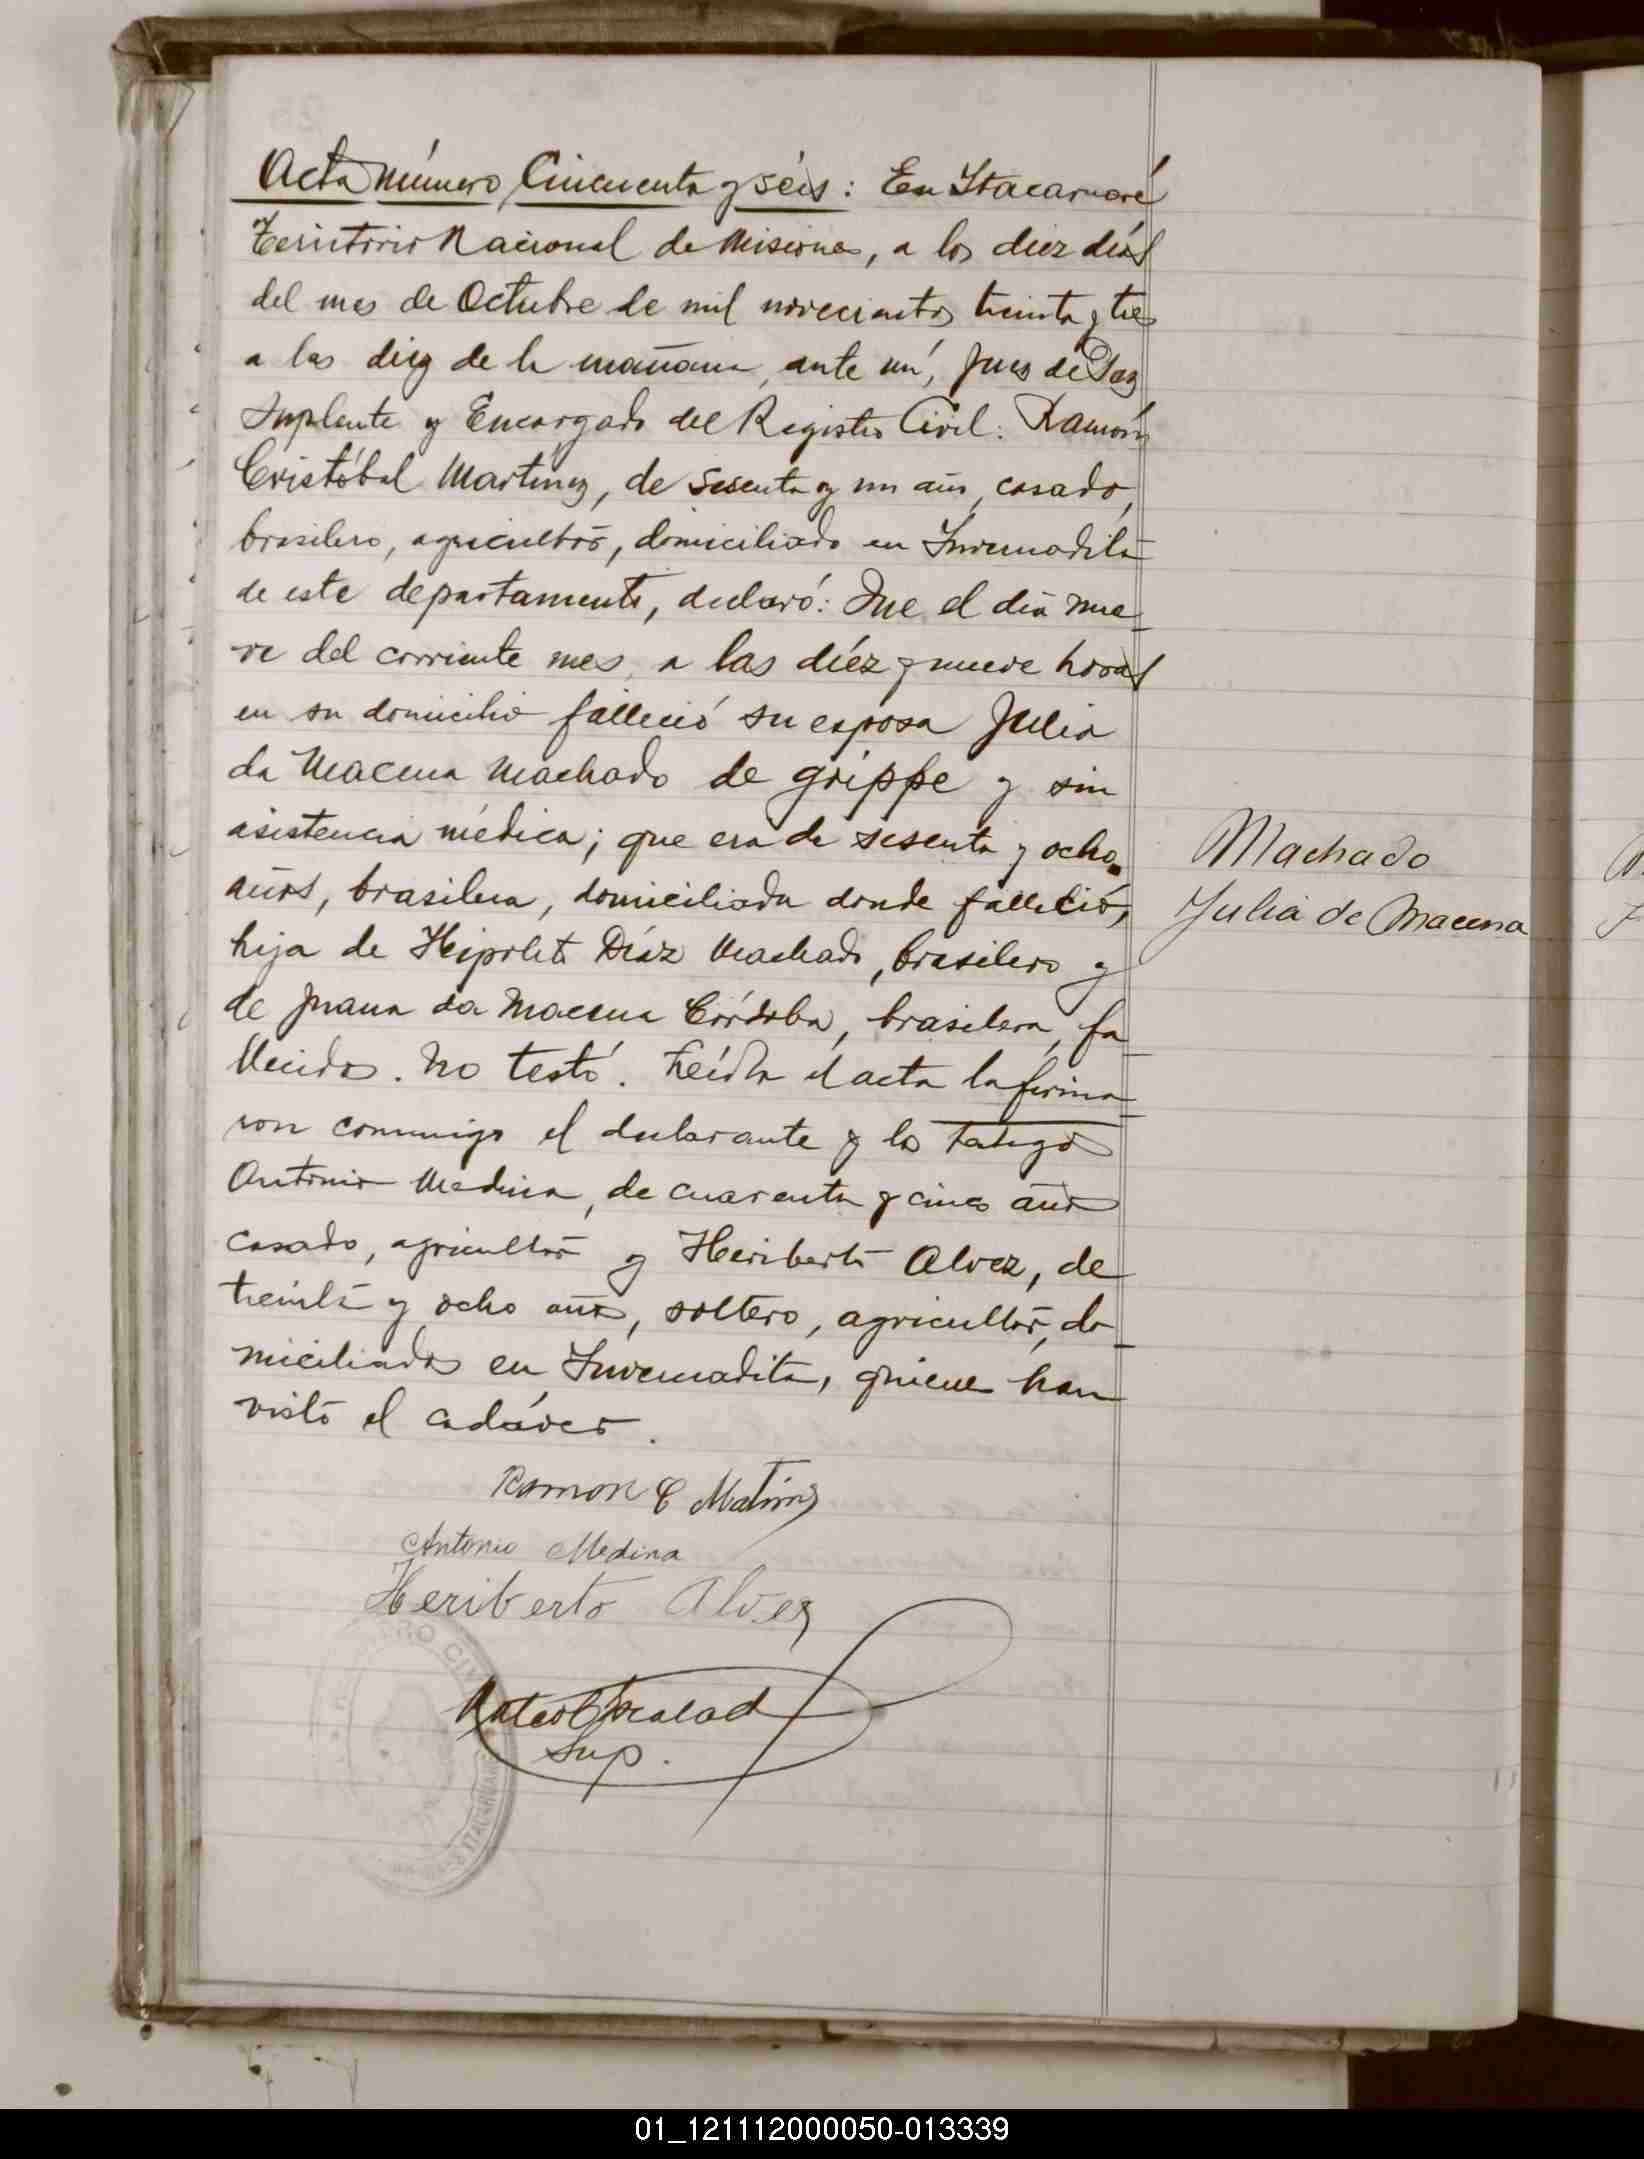 Acta número Cincuenta y séis: En Itacaruaré
Territorio Nacional de Misiones, a los diez días
del mes de Octubre de mil novecientos treinta y tres
a las diez de la mañana, ante mí, Juez de Paz
Suplente y Encargado del Registro Civil: Ramón
Cristóbal Martínez, de sesenta y un años, casado,
brasilero, agricultor, domiciliado en Invernadita
de este departamento, declaró: Que el día nue-
ve del corriente mes, a las diéz y nueve horas
en su domicilio falleció su esposa Julia
da Macena Machado de grippe y sin
asistencia médica; que era de sesenta y ocho
años, brasilera, domiciliada donde falleció,
hija de Hipolito Díaz Machado, brasilero y
de Juana da Macena Córdoba, brasilera, fa-
llecidos. No testó. Leída el acta la firma-
ron conmigo el declarante y los testigos
Antonio Medina, de cuarenta y cinco años
casado, agricultor y Heriberto Alvez, de
treinta y ocho años, soltero, agricultor, do-
miciliados en Invernadita, quienes han
visto el cadáver.
Machado
Julia de Macena
Ramon C Matinez
Antonio Medina
Heriberto Alvez
Sup.
01_121112000050-013339